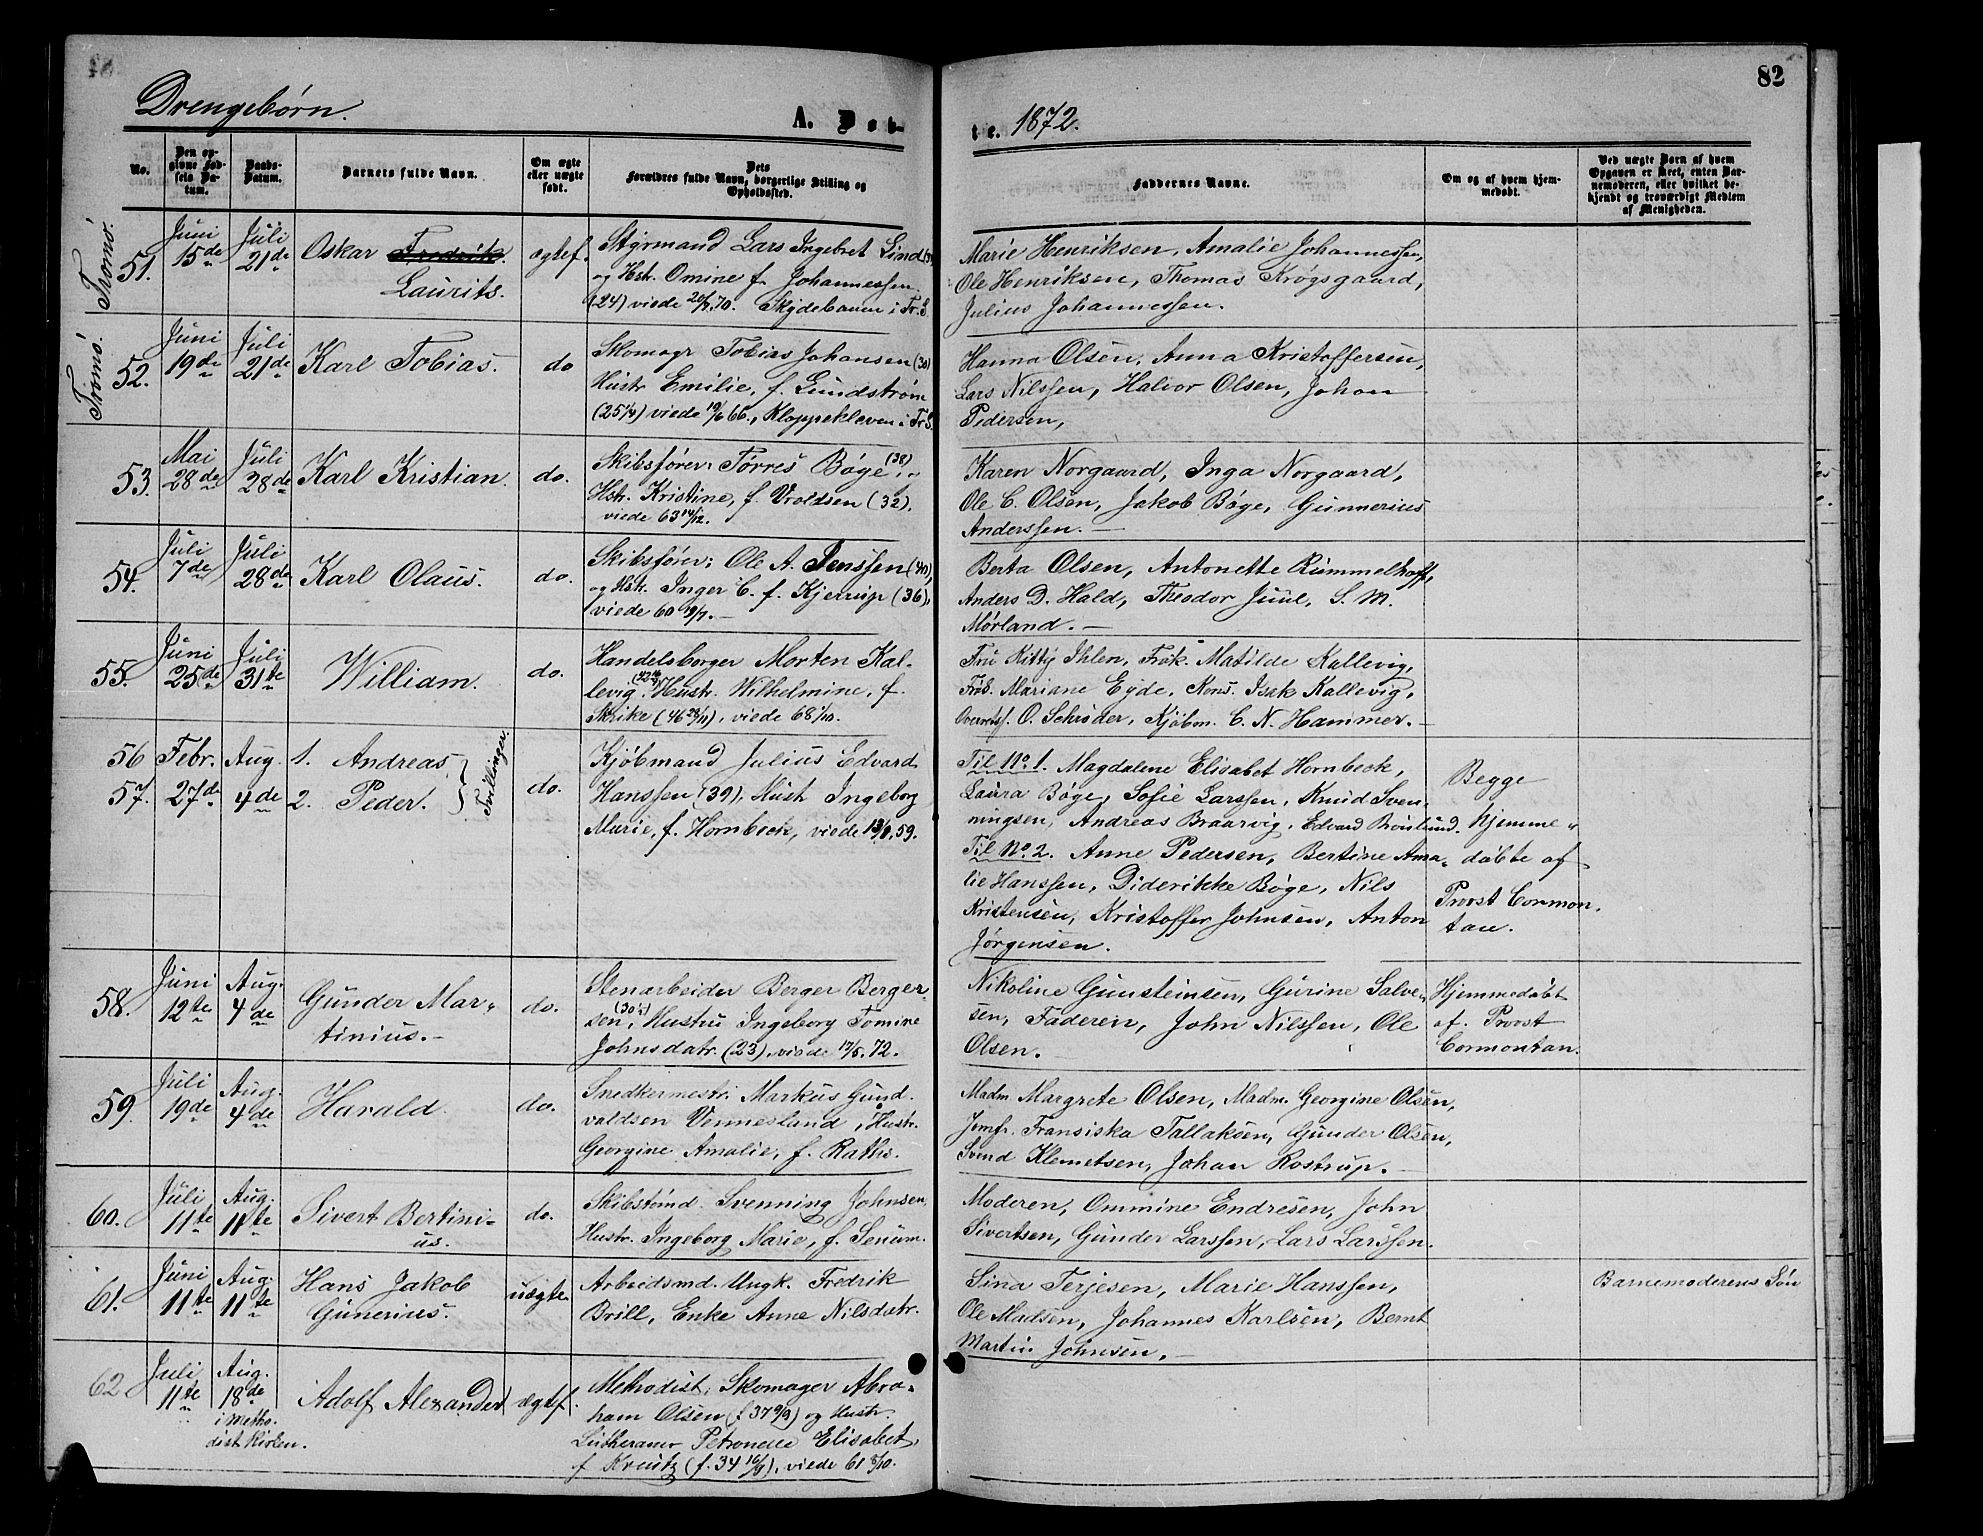 82
Drengebørn.
A. Døb-
te. 1872.
No.
Den op-
givne Fød-
sels Da-
tum.
Daabs-
Datum.
Barnets fulde Navn.
Om ægte
eller uægte
født.
Dets
Forældres fulde Navn, borgerlige Stilling og
Opholdssted.
Faddernes Navne.
Om og af hvem hjem-
medøbt.
Ved uægte Børn af hvem
Opgaven er skeet, enten Bar-
nemoderen, eller hvilket be-
kjendt og troværdigt Medlem
af Menigheden.
Tromø.
51.
Juni
15de
Juli
21de
Oskar Fredrik.
Laurits.
ægtef.
Styrmand Lars Ingebret Lind
og Hst. Omine f. Johannessen.
(24) viede 70. Skydebanen i Tr. S.
Marie Henriksen, Amalie Johannessen,
Ole Henriksen, Thomas Krøgsgaard,
Julius Johannessen.
Tromø.
52.
Juni
19de
Juli
21de
Karl Tobias.
do
Skomagr Tobias Johansen (30)
Hustr Emilie, f. Lundstrøm
(25 1/4) viede 19/6 66., Kloppekleven i Tr. S.
Hanna Olsen, Anna Kristoffersen,
Lars Nilssen, Halvor Olsen, Johan
Pedersen,
53.
Mai
28de
Juli
28de
Karl Kristian.
do.
Skibsfører: Tørres Bøge, (38)
Hstr. Kristine, f. Vroldsen (32).
viede 63 14/12.
Karen Norgaard, Inga Norgaard,
Ole C. Olsen, Jakob Bøge, Gunnerius
Anderssen. —
54.
Juli
7de
Juli
28de
Karl Olaus.
do.
Skibsfører: Ole A. Jenssen (40),
og Hst. Inger C. f. Kjerrup (36),
viede 60 19/7. —
Berta Olsen, Antonette Rummelhoff,
Anders D. Hald, Theodor Juul, S. M.
Mørland. —
55.
Juni
25de
Juli
31te
William.
do.
Handelsborger Morten Kal-
levig, Hustr. Wilhelmine, f.
Skrike (46 /11), viede 68 1/10.
Fru Kitty Ihlen, Frøk. Matilde Kallevig,
Frøk. Mariane Eyde, Kons. Isak Kallevig,
O. Schrøder, Kjøbm. C. N. Hammer. —
56
57.
Febr.
27de
Aug.
4de
1. Andreas
2. Peder.
Tvillinger.
do.
Kjøbmand Julius Edvard
Hanssen (39), Hust Ingeborg
Marie, f. Hornbeck, viede 13/9. 59.
Til No. 1. Magdalene Elisabet Hornbeck,
Laura Bøge, Sofie Larssen, Knud Sven-
ningsen, Andreas Braarvig, Edvard Brønlund.
Til No. 2. Anne Pedersen, Bertine Ama-
lie Hanssen, Diderikke Bøge, Nils
Kristensen, Kristoffer Johnsen, Anton
Jørgensen.
Begge
hjemme-
døbte af
Provst Cormon-
tan.
58.
Juni
12te
Aug.
4de
Gunder Mar-
tinius. —
do.
Stenarbeider Berger Berger-
sen, Hustru Ingeborg Tomine
Johnsdatr. (23), viede 17/5. 72.
Nikoline Gunsteinsen, Gurine Salve-
sen, Faderen, John Nilssen, Ole
Olsen. —
Hjemmedøbt
af. Provst
Cormontan.
59.
Juli
19de
Aug.
4de
Harald.
do.
Snedkermestr: Markus Gund-
valdsen Vennesland, Hustr.
Georgine Amalie, f. Raths.
Madm Margrete Olsen, Madm. Georgine Olsen,
Jomfr. Fransiska Tallaksen, Gunder Olsen,
Svend Klemetsen, Johan Rostrup. —
60.
Juli
11te
Aug.
11te
Sivert Bertini-
us.
do.
Skibstømd. Svenning Johnsen,
Hustr. Ingeborg Marie, f. Senum.
Moderen, Ommine Endresen, John
Sivertsen, Gunder Larssen, Lars Larssen.
61.
Juni
11te
Aug.
11te
Hans Jakob
Gunerius.
uægte
Arbeidsmd. Ungk. Fredrik
Brill, Enke Anne Nilsdatr.
Sina Terjesen, Marie Hanssen,
Ole Madsen, Johannes Karlsen, Bernt
Martin Johnsen, —
Barnemoderens Søn
62
Juli
11te
Aug.
18de
i Metho-
dist Kirken.
Adolf Alexander
ægtef.
Methodist: Skomager Abra-
ham Olsen (f. 37 9/9) og Hustr.
Lutheraner Petronelle Elisabet,
f Kreutz (f. 34 16/9), viede 61 8/10.